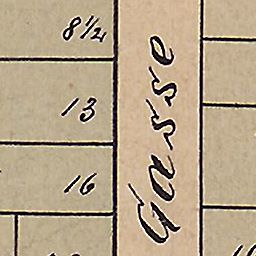 8½
13
16
Gasse